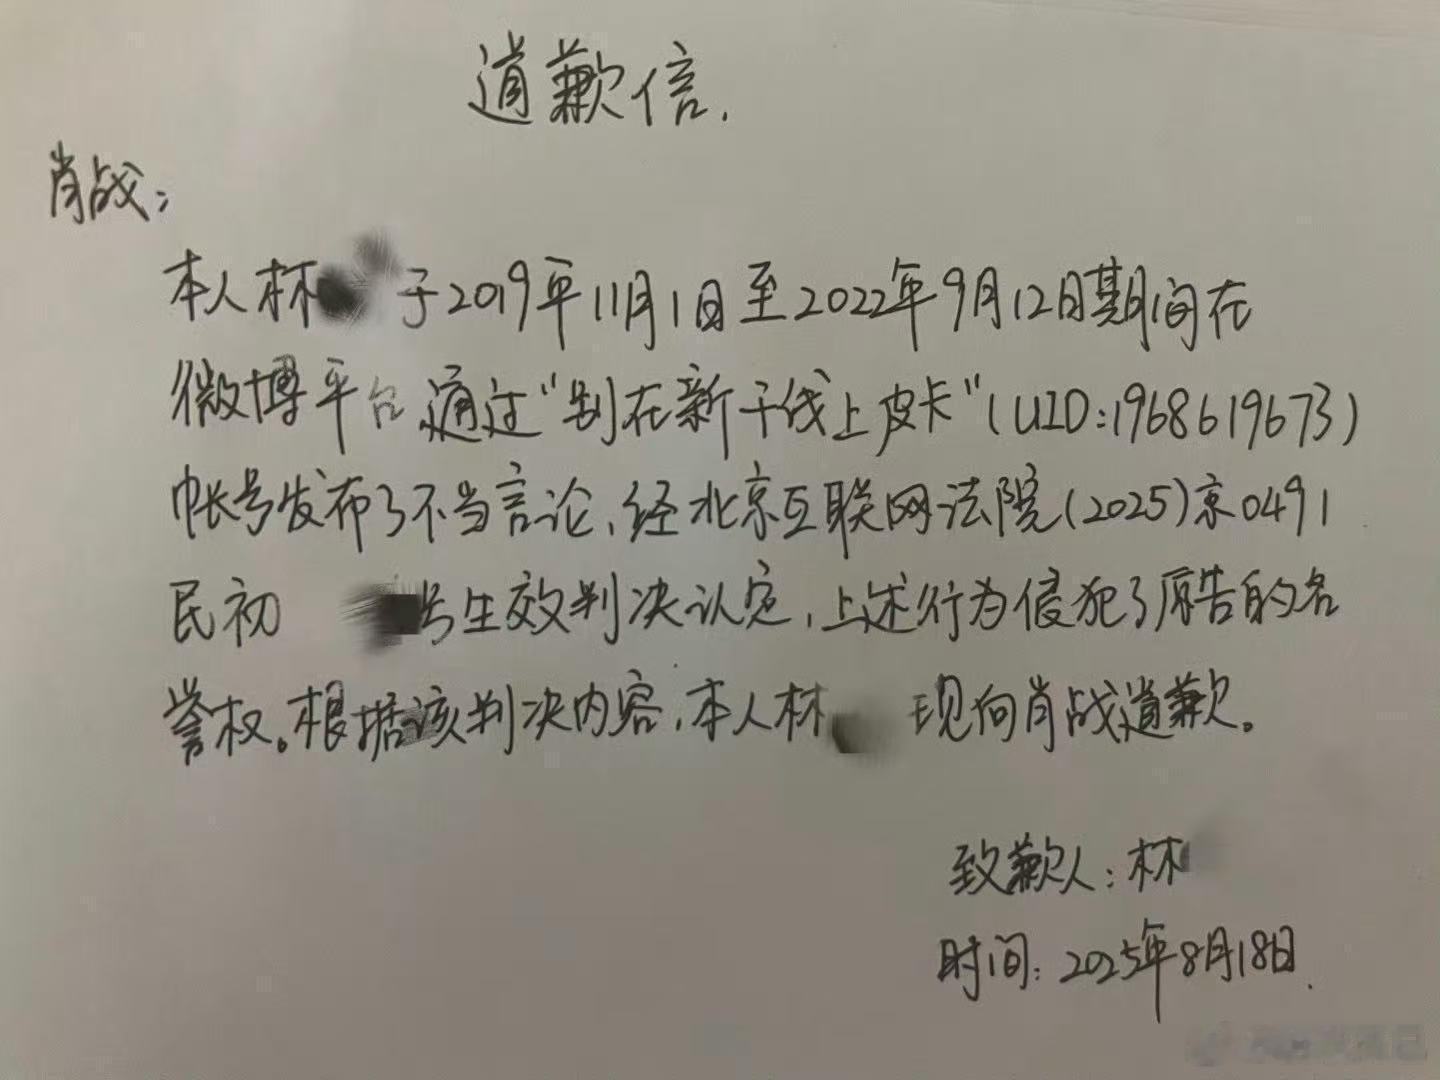 道歉信.
肖战:
本人林 于2019年11月1日至2022年9月12日期间在
微博平台通过“别在新干线上皮卡”(UID:1968619673)
帐号发布了不当言论,经北京互联网法院(2025)京0491
民初 号生效判决认定,上述行为侵犯了原告的名
誉权。根据该判决内容,本人林 现向肖战道歉。
致歉人:林
时间:2025年8月18日.